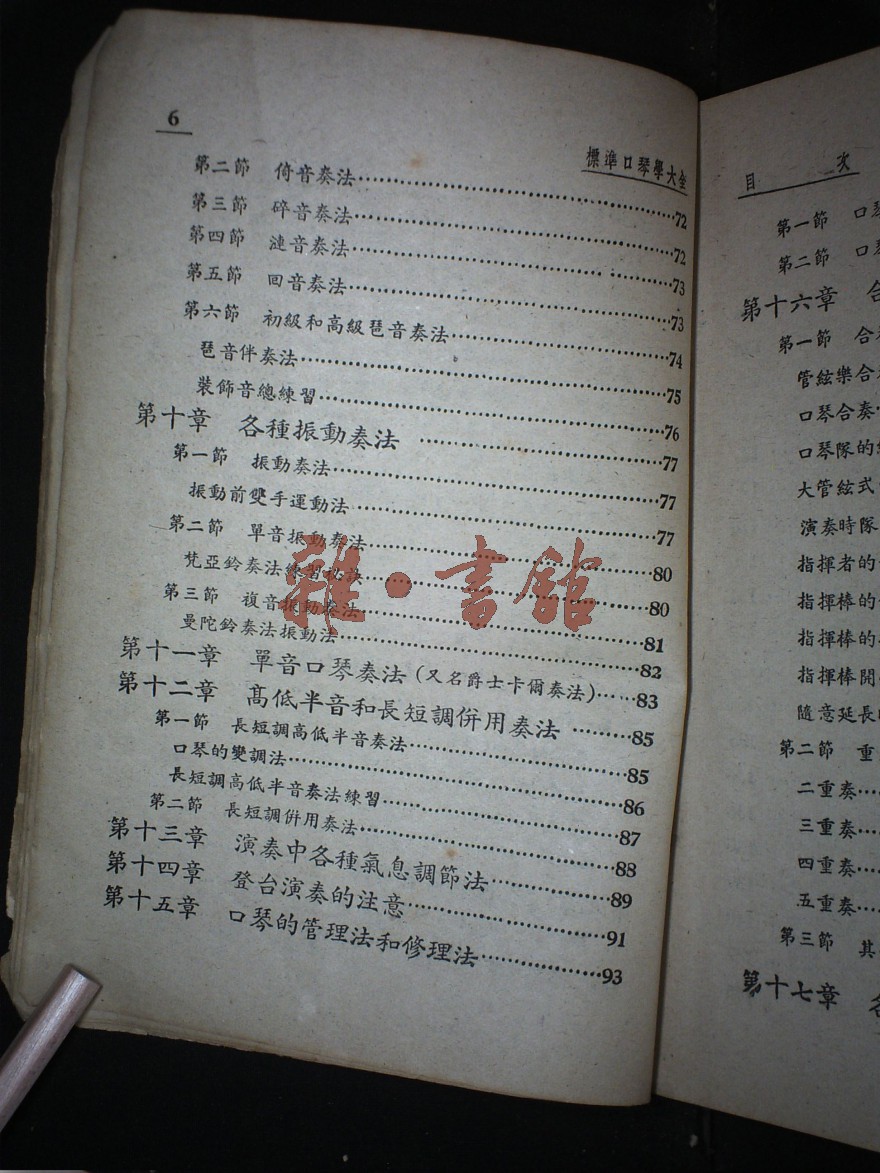 6
標準口琴學大全
第二節 倚音奏法……72
第三節 碎音奏法……72
第四節 漣音奏法……73
第五節 回音奏法……73
第六節 初級和高級琶音奏法……74
琶音伴奏法……75
裝飾音總練習……76
第十章 各種振動奏法……77
第一節 振動奏法……77
振動前雙手運動法……77
第二節 單音振動奏法……80
梵亞鈴奏法練習秘訣……80
第三節 複音振動奏法……81
曼陀鈴奏法振動法……82
第十一章 單音口琴奏法(又名爵士卡爾奏法)……83
第十二章 髙低半音和長短調併用奏法……85
第一節 長短調高低半音奏法……85
口琴的變調法……86
長短調高低半音奏法練習……87
第二節 長短調併用奏法……88
第十三章 演奏中各種氣息調節法……89
第十四章 登台演奏的注意……91
第十五章 口琴的管理法和修理法……93
雜·書館
目 次
第一節 口琴
第二節 口
第十六章 合
第一節 合奏
管絃樂合
口琴合奏
口琴隊的
大管絃式
演奏時隊
指揮者的
指揮棒的
指揮棒的
指揮棒開
隨意延長
第二節 重
二重奏……
三重奏……
四重奏……
五重奏……
第三節 其
第十七章 各